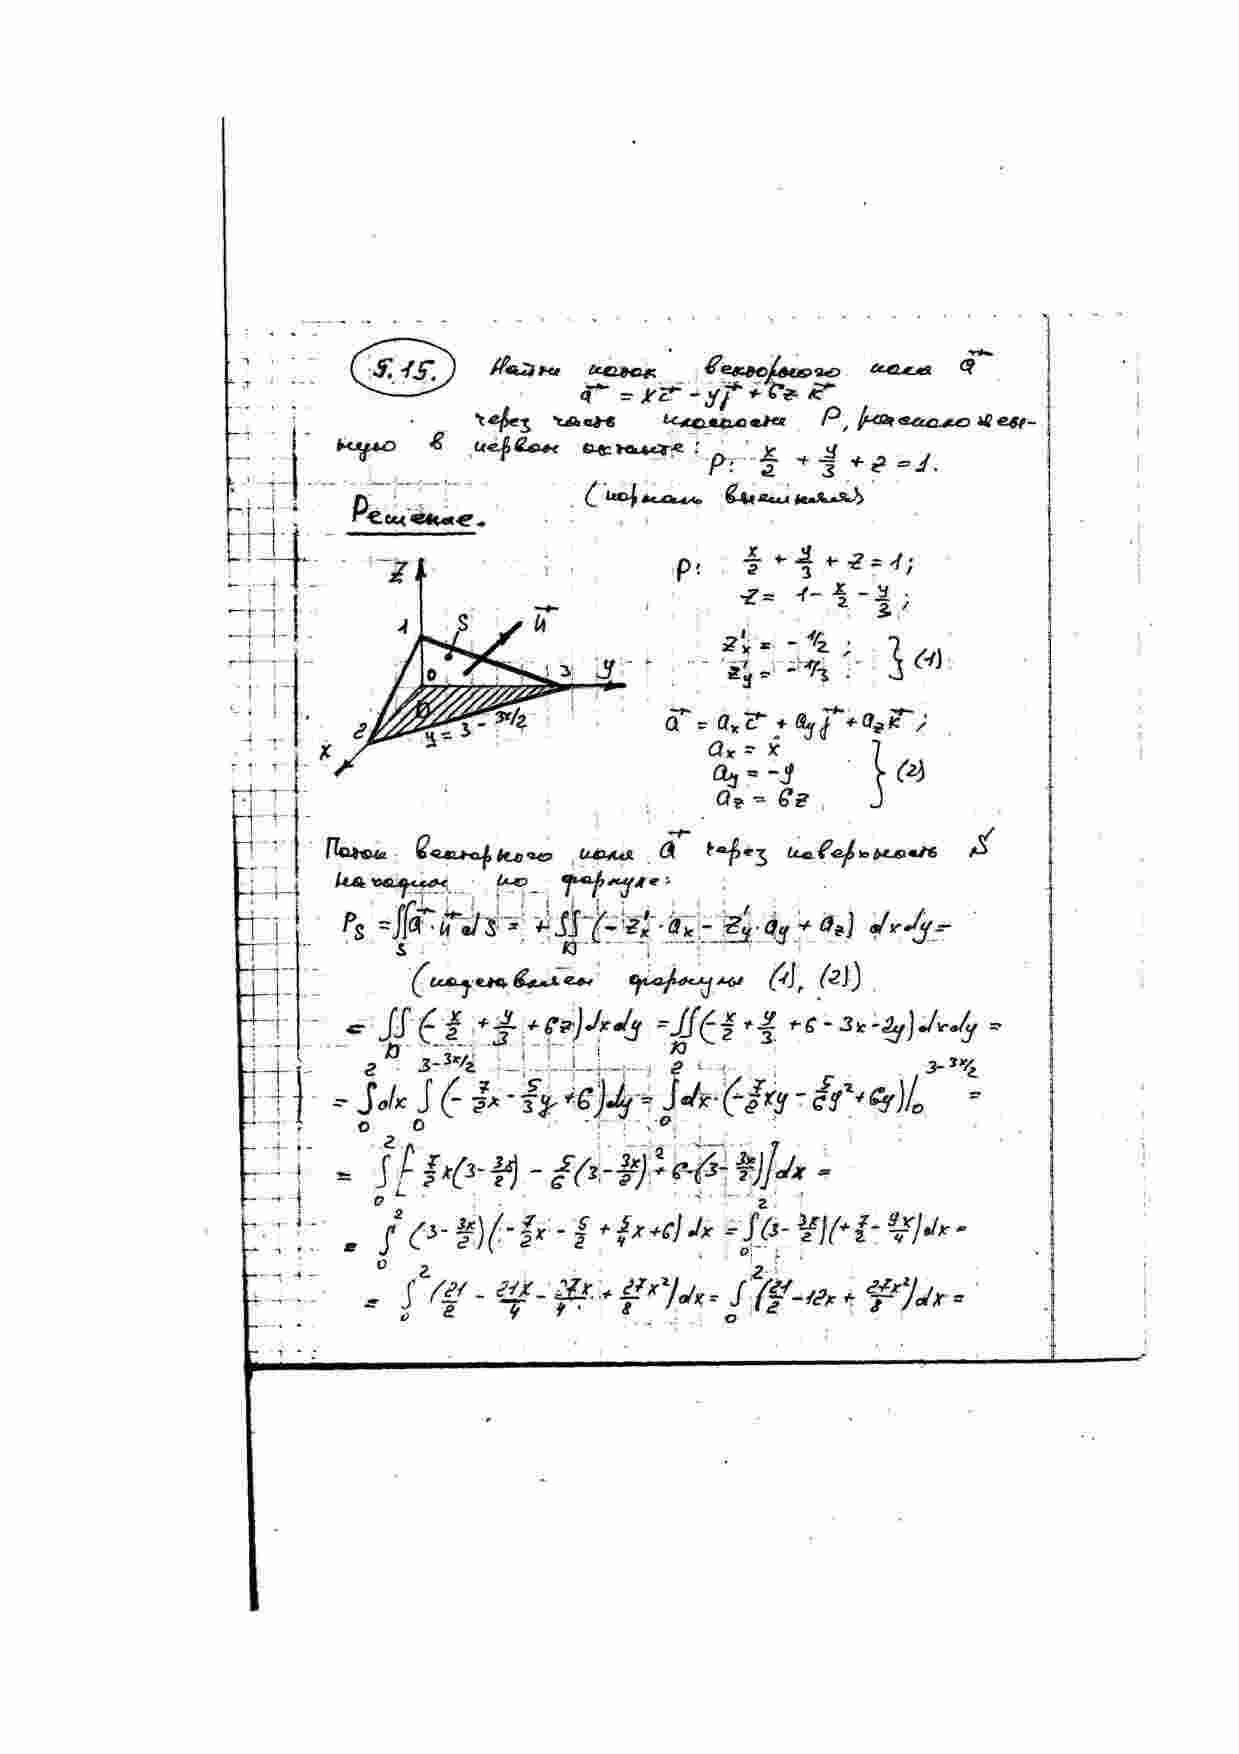 5.15. Найти поток векторного поля a⃗
a⃗ = xi⃗ - yj⃗ + 6z k⃗
через часть плоскости P, расположен-
ную в первом октанте: P: x/2 + y/3 + z = 1.
(нормаль внешняя)
Решение.
P: x/2 + y/3 + z = 1;
z = 1 - x/2 - y/3;
z'x = -1/2; z'y = -1/3 } (1)
Z
1
S
n⃗
0
3
y
D
2
y = 3 - 3x/2
x
a⃗ = aₓi⃗ + a_y j⃗ + a_z k⃗;
aₓ = x
a_y = -y } (2)
a_z = 6z
Поток векторного поля a⃗ через поверхность S
находим по формуле:
P_S = ∬_S a⃗·n⃗ dS = + ∬_D (-z'x·aₓ - z'y·a_y + a_z) dxdy =
(подставляем формулы (1), (2))
= ∬_D (-x/2 + y/3 + 6z) dxdy = ∬_D (-x/2 + y/3 + 6 - 3x - 2y) dxdy =
= ∫₀² dx ∫₀^(3-3x/2) (-7/2 x - 5/3 y + 6) dy = ∫₀² dx·(-7/2 xy - 5/6 y² + 6y)|₀^(3-3x/2) =
= ∫₀² [-7/2 x(3 - 3x/2) - 5/6 (3 - 3x/2)² + 6·(3 - 3x/2)] dx =
= ∫₀² (3 - 3x/2)(-7/2 x - 5/2 + 5/4 x + 6) dx = ∫₀² (3 - 3x/2)(+7/2 - 9x/4) dx =
= ∫₀² (21/2 - 21x/4 - 27x/4 + 27x²/8) dx = ∫₀² (21/2 - 12x + 27x²/8) dx =